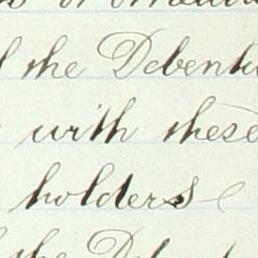 the Debentu
with these
holders
the Deben